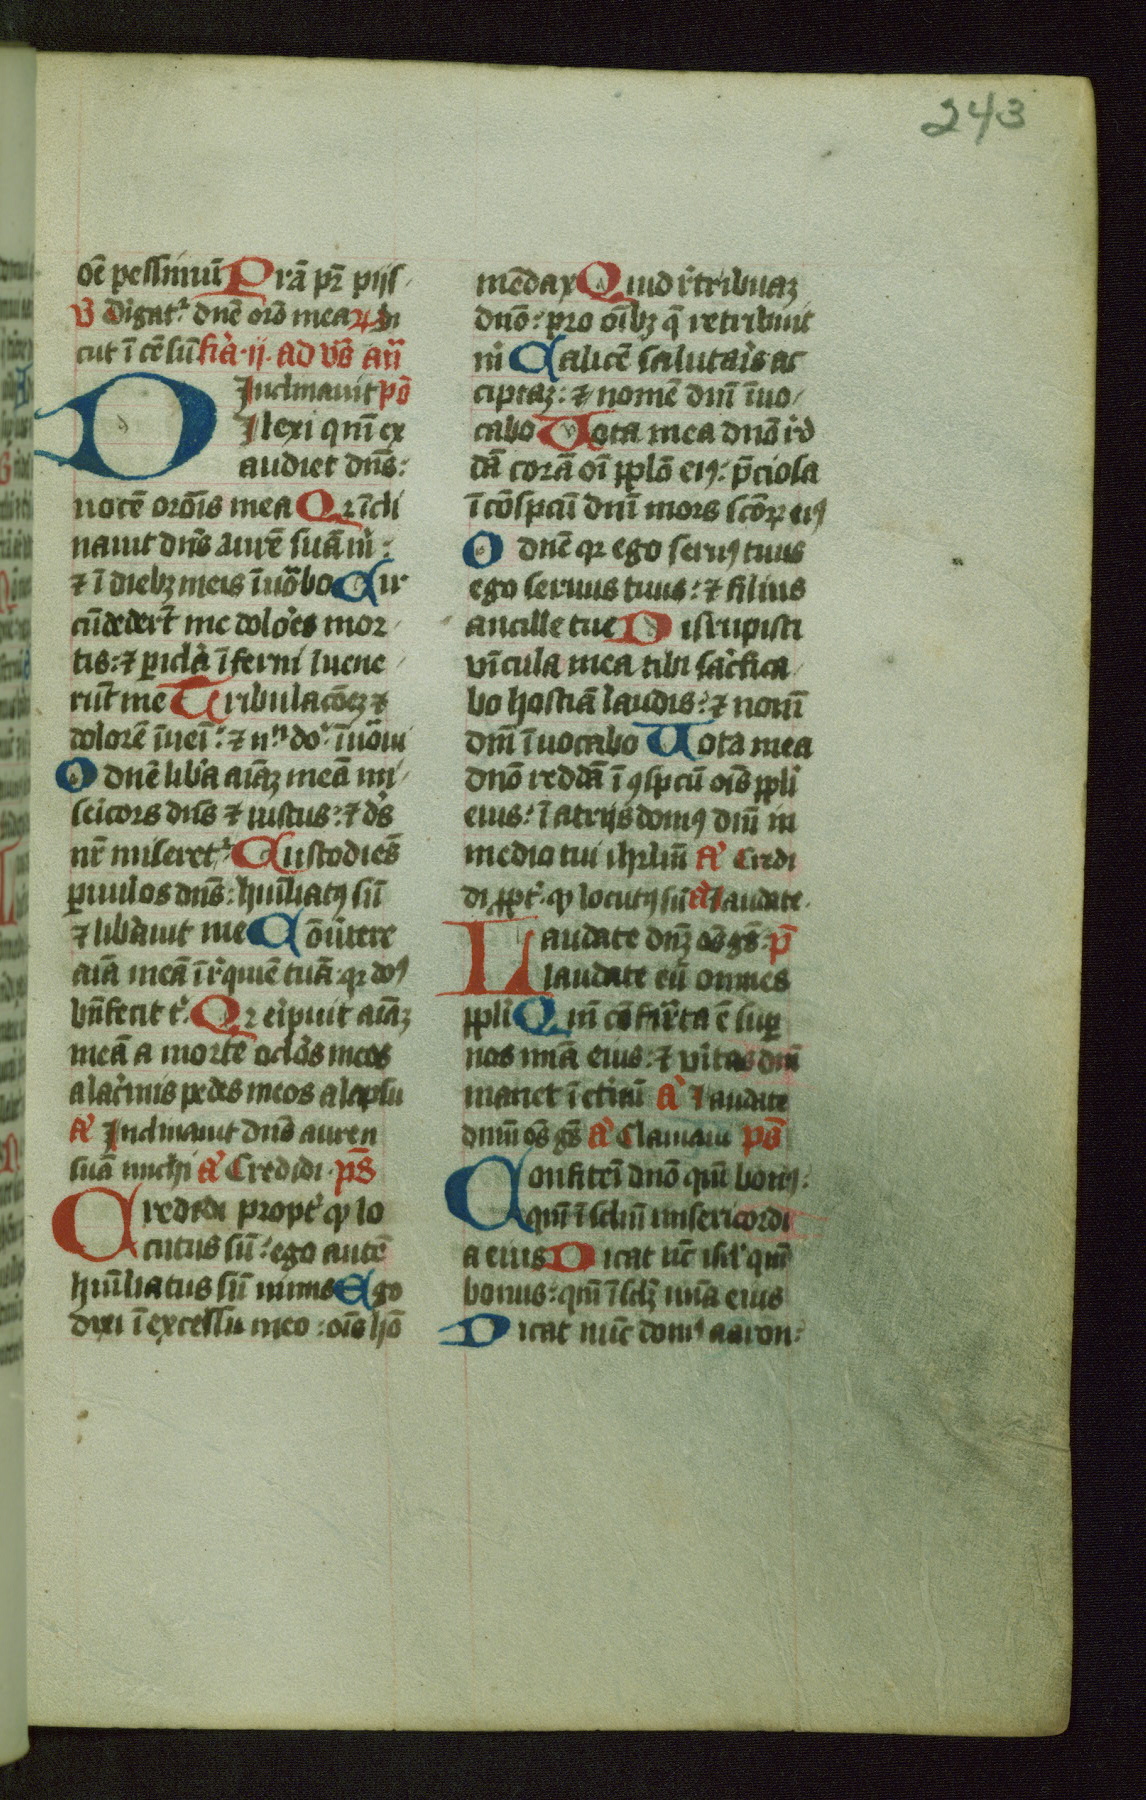 243
oē pessimū Prā pr̄ pijs
V̄ Dīgat᷑ dnē orō mea R̄ Si
cut ī cēsū fīa · ij · ad vs̄ an̄
Inclinauit ps̄
Dilexi qm̄ ex
audiet dn̄s:
uocē orōis mea Qr īcli
nauit dn̄s aurē suā m̄:
⁊ ī diebꝫ meis īuōbo Cir
cūdedert̄ me dolōes mor
tis: ⁊ pīclā īferni īuene
rūt me Tribulacōeꝫ ⁊
dolorē īuenī: ⁊ nn̄ do᷑ īuōui
O dnē libā aīaꝫ meā mi
seicors dn̄s ⁊ iustus: ⁊ ds̄
nr̄ miseret᷑ Custodiēs
ꝑuulos dn̄s: huīliatꝰ sū
⁊ libāuit me Cōuertere
aīa meā ī rquiē tuā: qr doꝰ
bn̄fecit t᷑ Qr eīpuit aīaꝫ
meā a morte oclōs meos
a lacīmis pedes meos a lapsu
A᷑ Inclinauit dn̄s auren
suā michi A᷑ Credidi ps̄
Credidi propt᷑ qd lo
cutus sū: ego autē
huīliatus sū nimis Ego
dixi ī excessu meo: oīs hō
mēdax Quid rētribuaꝫ
dnō: pro oībꝫ q̄ retribuit
m̄ Calicē salutaīs ac
cipiaꝫ: ⁊ nomē dnī īuo
cabo Uota mea dnō rd
dā corā oī pplō eiꝰ: p̄ciosa
ī cōspcū dnī mors scōꝝ eiꝰ
O dnē qr ego seruꝰ tuus
ego seruus tuus: ⁊ filius
ancille tue Disrupisti
vīcula mea tibi sacīfica
bo hostiā laudis: ⁊ nom̄
dnī īuocabo Uota mea
dnō reddā ī ꝯspcū oīs ppli
eius: ī atrijs domꝰ dnī in
medio tui ihrlm̄ A᷑ Credi
di ppt᷑ qd locutꝰ sū A᷑ Laudate
Laudate dnꝫ oēs gēs: ps̄
laudate eū omnes
ppli Qm̄ cōfirta ē suꝑ
nos mīa eius: ⁊ vitas dnī
manet ī etnū A᷑ Laudate
dnm̄ oēs gēs A᷑ Clamaui ps̄
Confitei dnō qm̄ bonꝰ:
qm̄ ī sclm̄ misericordi
a eius Dicat nc̄ isrl qm̄
bonus: qm̄ ī sclꝫ mīa eius
Dicat nūc domꝰ aaron: